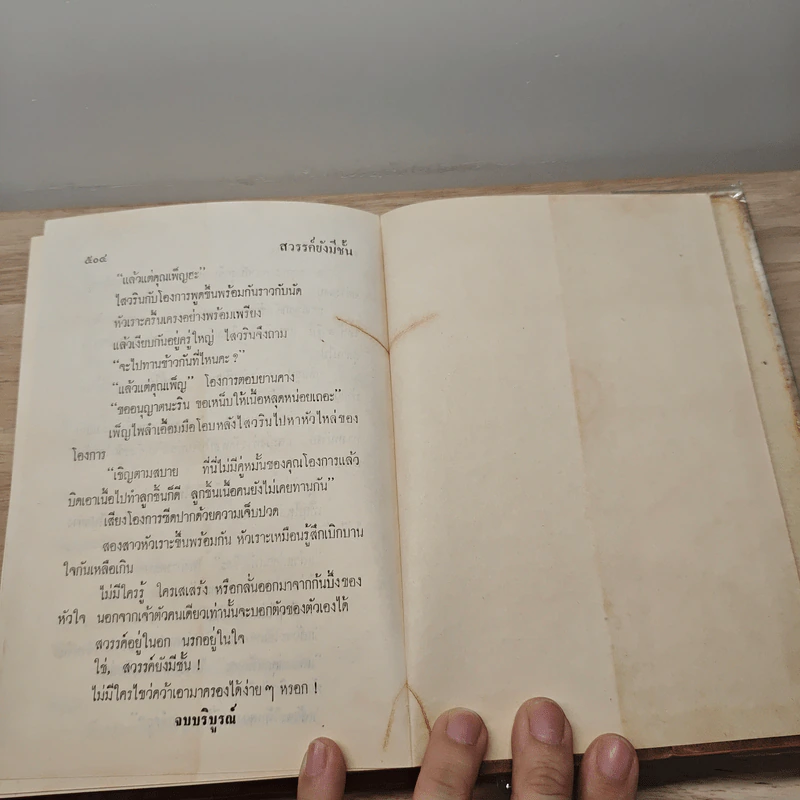 ๕๐๔ สวรรค์ยังมีชั้น
“แล้วแต่คุณเพ็ญฮะ”
ไสวรินกับโองการพูดขึ้นพร้อมกันราวกับนัด
หัวเราะครื้นเครงอย่างพร้อมเพรียง
แล้วเงียบกันอยู่ครู่ใหญ่ ไสวรินจึงถาม
“จะไปทานข้าวกันที่ไหนคะ ?”
“แล้วแต่คุณเพ็ญ” โองการตอบยานคาง
“ขออนุญาตนะริน ขอเหน็บให้เนื้อหลุดหน่อยเถอะ”
เพ็ญไพลำเอื้อมมือโอบหลังไสวรินไปหาหัวไหล่ของ
โองการ
“เชิญตามสบาย ที่นี่ไม่มีคู่หมั้นของคุณโองการแล้ว
บิดเอาเนื้อไปทำลูกชิ้นก็ดี ลูกชิ้นเนื้อคนยังไม่เคยทานกัน”
เสียงโองการซี้ดปากด้วยความเจ็บปวด
สองสาวหัวเราะขึ้นพร้อมกัน หัวเราะเหมือนรู้สึกเบิกบาน
ใจกันเหลือเกิน
ไม่มีใครรู้ ใครเสแสร้ง หรือกลั่นออกมาจากก้นบึ้งของ
หัวใจ นอกจากเจ้าตัวคนเดียวเท่านั้นจะบอกตัวของตัวเองได้
สวรรค์อยู่ในอก นรกอยู่ในใจ
ใช่, สวรรค์ยังมีชั้น !
ไม่มีใครไขว่คว้าเอามาครองได้ง่าย ๆ หรอก !
จบบริบูรณ์